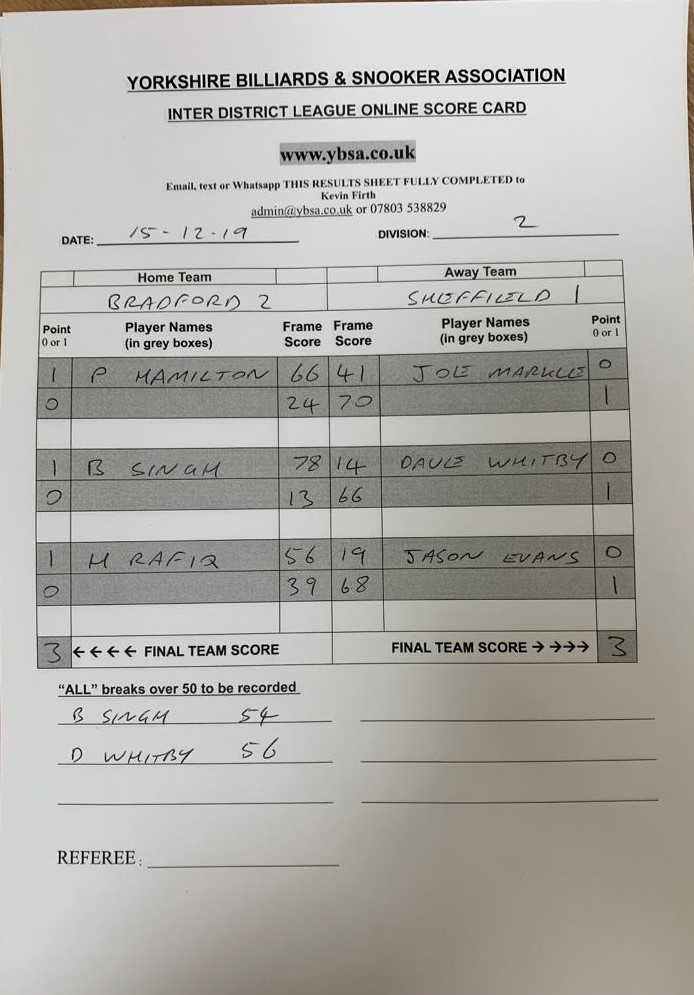 YORKSHIRE BILLIARDS & SNOOKER ASSOCIATION
INTER DISTRICT LEAGUE ONLINE SCORE CARD
www.ybsa.co.uk
Email, text or Whatsapp THIS RESULTS SHEET FULLY COMPLETED to
Kevin Firth
admin@ybsa.co.uk or 07803 538829
DATE: 15-12-19 DIVISION: 2
Home Team Away Team
BRADFORD 2 SHEFFILELD 1
Point 0 or 1 Player Names (in grey boxes) Frame Score Frame Score Player Names (in grey boxes) Point 0 or 1
1 P HAMILTON 66 41 JOE MARKLE 0
0 24 70 1
1 B SINGH 78 14 DAVE WHITBY 0
0 13 66 1
1 M RAFIQ 56 19 JASON EVANS 0
0 39 68 1
3 ←←←← FINAL TEAM SCORE FINAL TEAM SCORE →→→→ 3
"ALL" breaks over 50 to be recorded
B SINGH 54
D WHITBY 56
REFEREE: